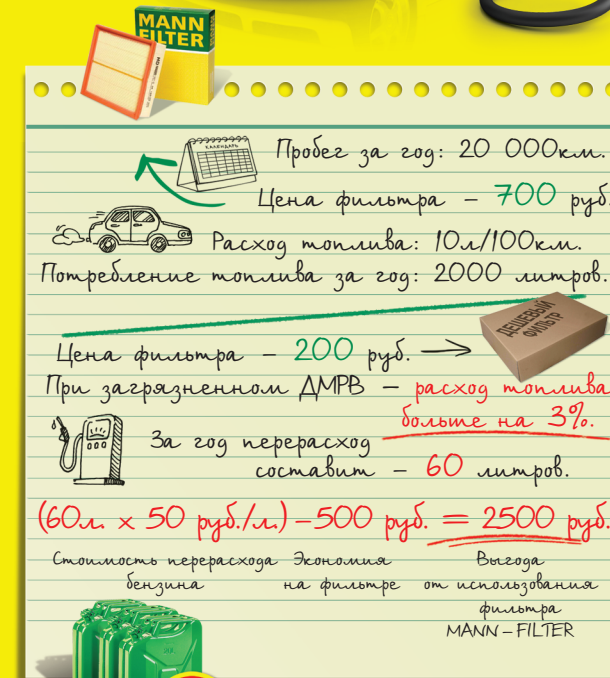 MANN
FILTER
КАЛЕНДАРЬ
Пробег за год: 20 000км.
Цена фильтра – 700 руб.
Расход топлива: 10л/100км.
Потребление топлива за год: 2000 литров.
ДЕШЕВЫЙ
ФИЛЬТР
Цена фильтра – 200 руб.
При загрязненном ДМРВ – расход топлива
больше на 3%.
За год перерасход
составит – 60 литров.
(60л. x 50 руб./л.) – 500 руб. = 2500 руб.
Стоимость перерасхода Экономия Выгода
бензина на фильтре от использования
фильтра
MANN – FILTER